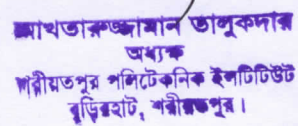 আখতারুজ্জামান তালুকদার
অধ্যক্ষ
শরীয়তপুর পলিটেকনিক ইন্সটিটিউট
বুড়িরহাট, শরীয়তপুর।